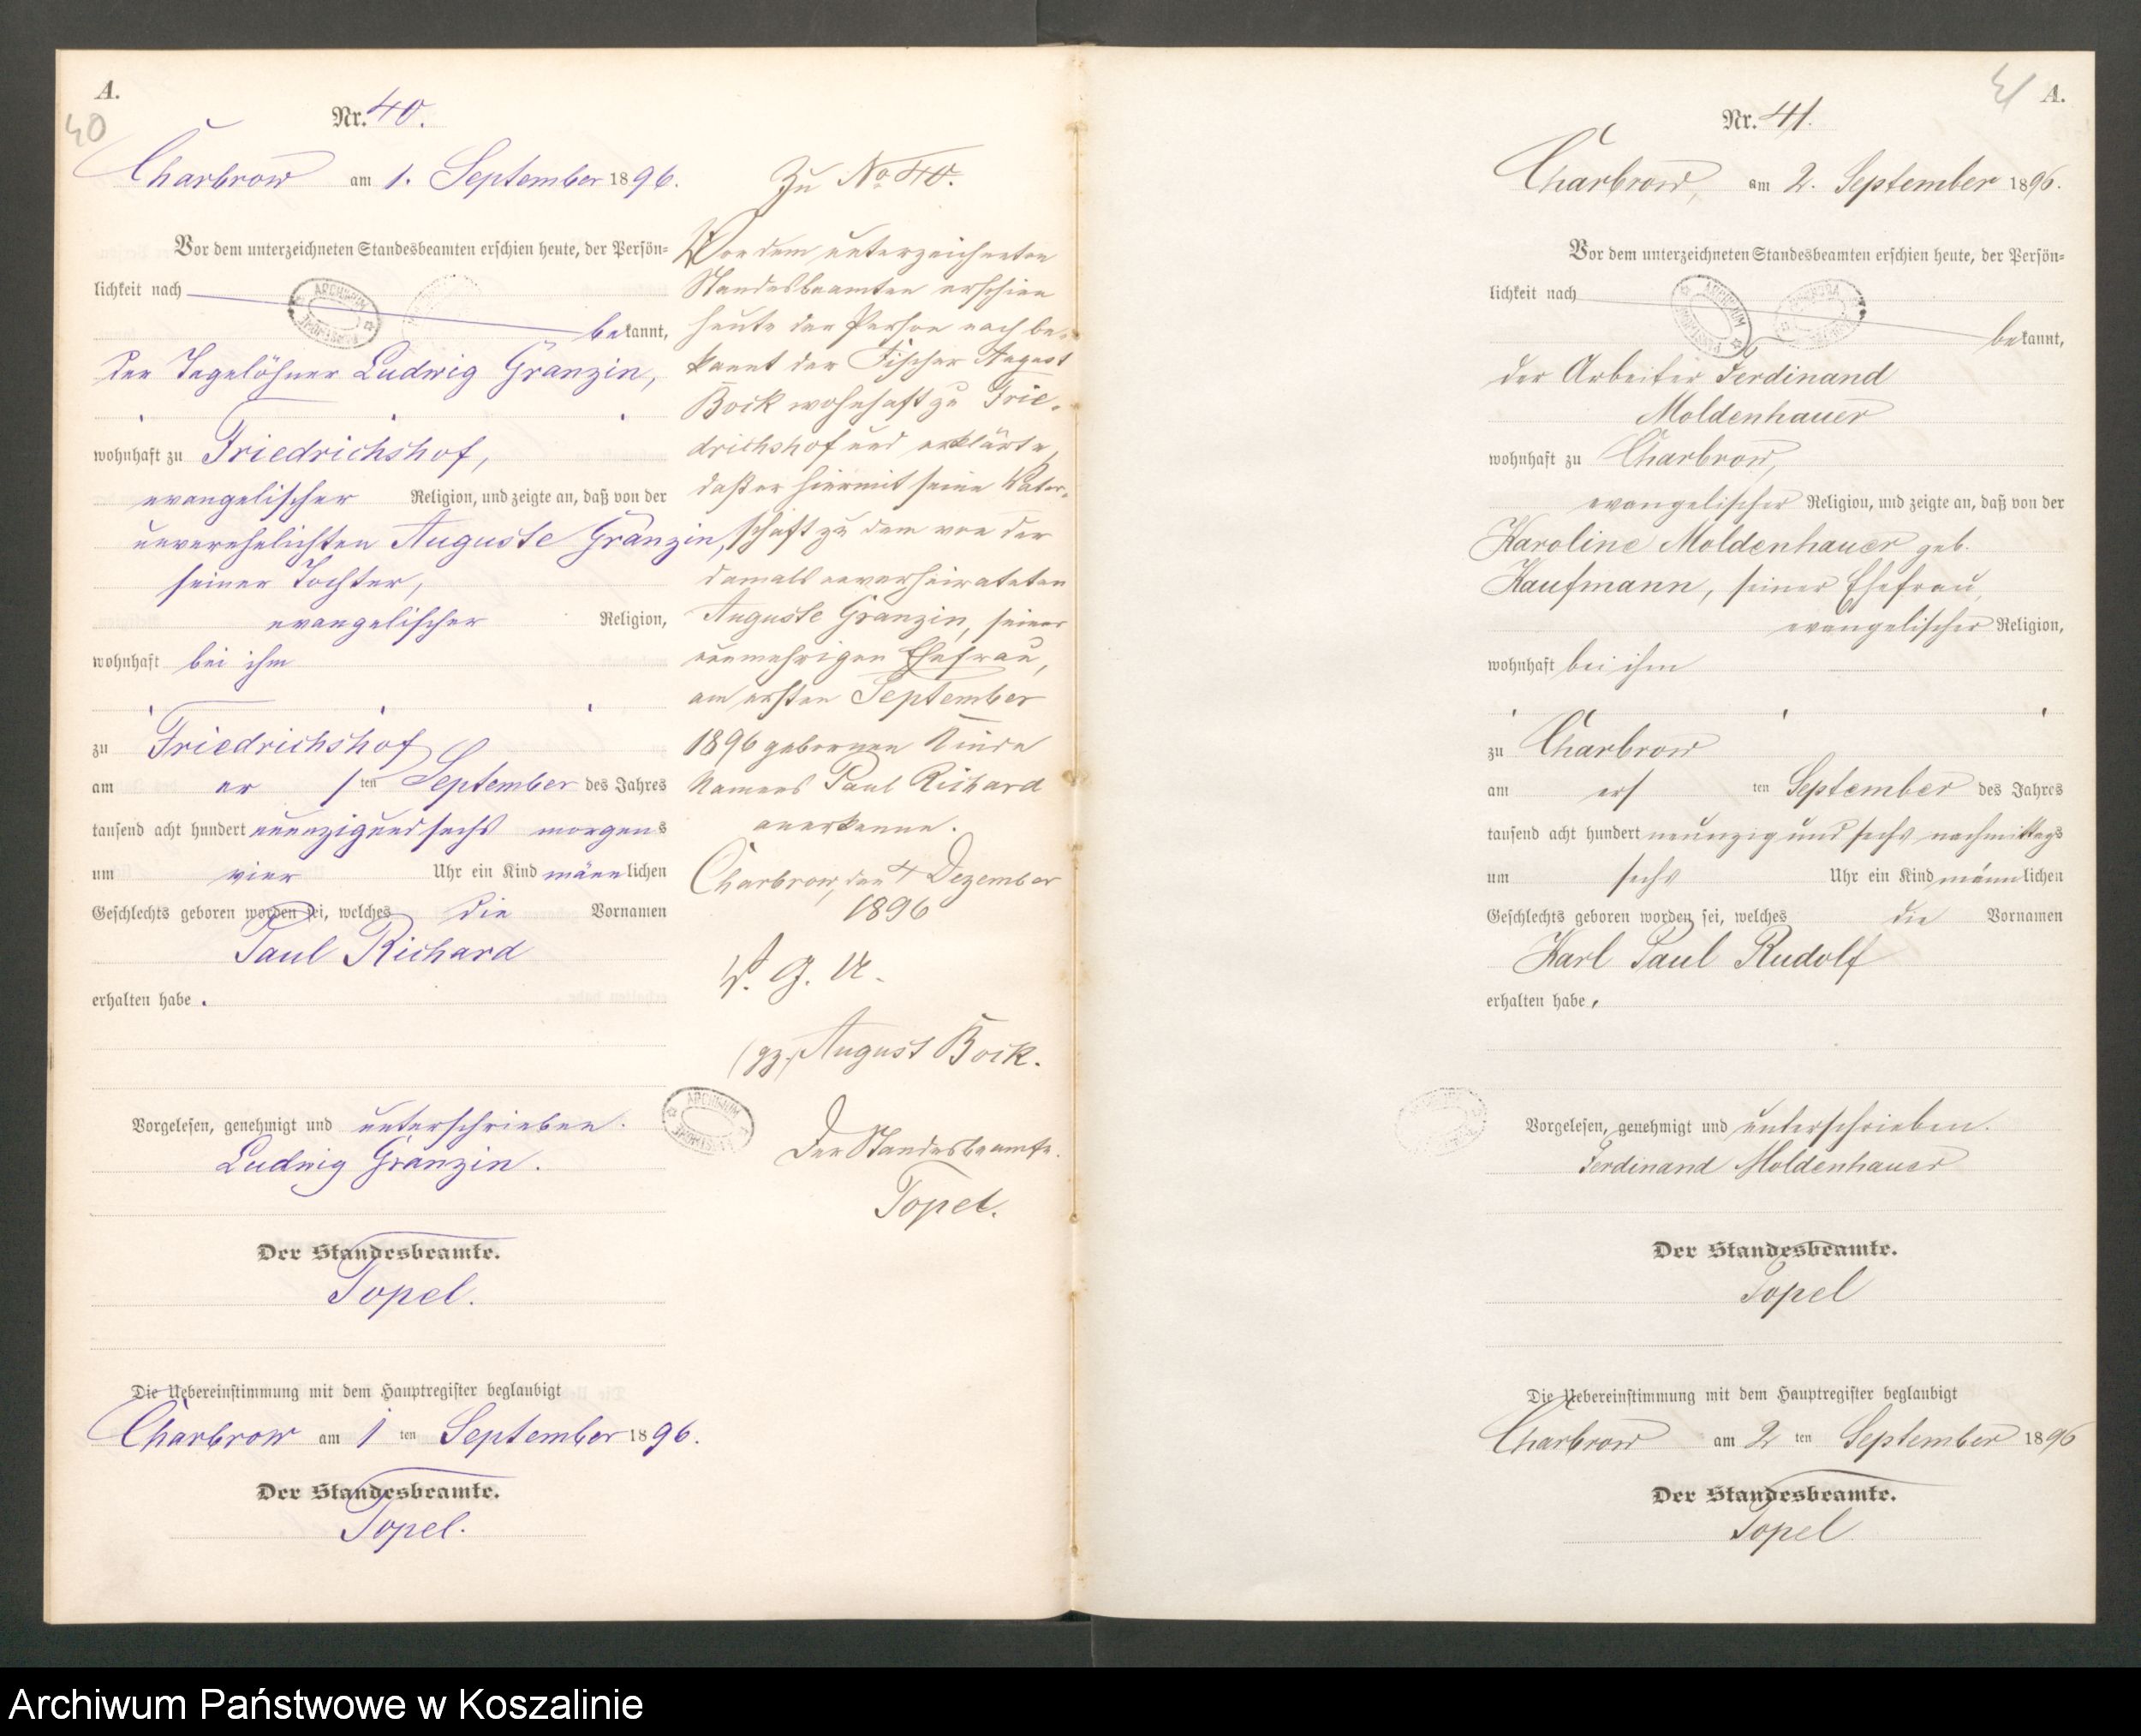 A.
40
Nr. 40.
Charbrow am 1. September 1896.
Vor dem unterzeichneten Standesbeamten erschien heute, der Persön=
lichkeit nach
bekannt,
der Tagelöhner Ludwig Granzin,
wohnhaft zu Friedrichshof,
evangelischer Religion, und zeigte an, daß von der
unverehelichten Auguste Granzin,
seiner Tochter,
evangelischer Religion,
wohnhaft bei ihm
zu Friedrichshof
am er 1ten September des Jahres
tausend acht hundert neunzig und sechs morgens
um vier Uhr ein Kind männlichen
Geschlechts geboren worden sei, welches die Vornamen
Paul Richard
erhalten habe.
Vorgelesen, genehmigt und unterschrieben.
Ludwig Granzin.
Der Standesbeamte.
Topel.
Die Uebereinstimmung mit dem Hauptregister beglaubigt
Charbrow am 1ten September 1896.
Der Standesbeamte.
Topel.
Zu No 40.
Vor dem unterzeichneten
Standesbeamten erschien
heute der Person nach be-
kannt der Fischer August
Bock wohnhaft zu Frie-
drichshof und erklärte,
daß er hiermit seine Vater-
schaft zu dem von der
damals unverheirateten
Auguste Granzin, seiner
nunmehrigen Ehefrau,
am ersten September
1896 geborenen Kinde
Namens Paul Richard
anerkenne.
Charbrow, den 4 Dezember
1896
V. g. U.
(gz.) August Bock.
Der Standesbeamte.
Topel.
ARCHIWUM
41
A.
Nr. 41.
Charbrow, am 2. September 1896.
Vor dem unterzeichneten Standesbeamten erschien heute, der Persön=
lichkeit nach
bekannt,
der Arbeiter Ferdinand
Moldenhauer
wohnhaft zu Charbrow,
evangelischer Religion, und zeigte an, daß von der
Karoline Moldenhauer geb.
Kaufmann, seiner Ehefrau,
evangelischer Religion,
wohnhaft bei ihm
zu Charbrow
am ersten September des Jahres
tausend acht hundert neunzig und sechs nachmittags
um sechs Uhr ein Kind männlichen
Geschlechts geboren worden sei, welches die Vornamen
Karl Paul Rudolf
erhalten habe.
Vorgelesen, genehmigt und unterschrieben.
Ferdinand Moldenhauer
Der Standesbeamte.
Topel
Die Uebereinstimmung mit dem Hauptregister beglaubigt
Charbrow am 2ten September 1896
Der Standesbeamte.
Topel
Archiwum Państwowe w Koszalinie